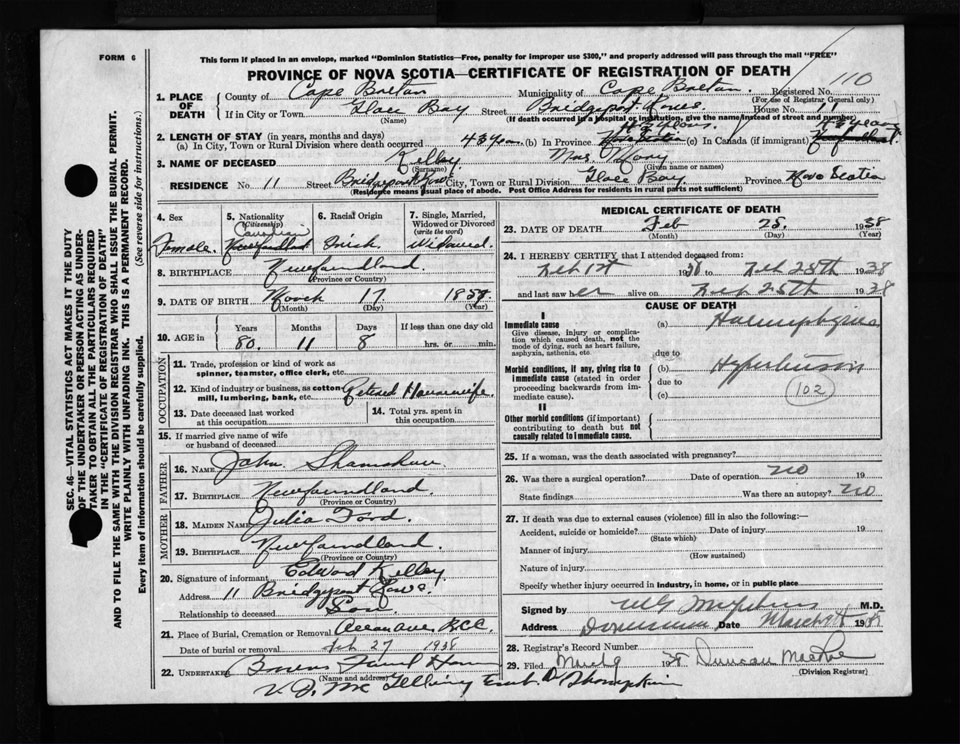 FORM 6
This form if placed in an envelope, marked "Dominion Statistics—Free, penalty for improper use $300," and properly addressed will pass through the mail "FREE"
PROVINCE OF NOVA SCOTIA—CERTIFICATE OF REGISTRATION OF DEATH
110
1. PLACE OF DEATH
County of Cape Breton Municipality of Cape Breton Registered No.
(For use of Registrar General only)
If in City or Town Glace Bay Street Bridgeport Rows. House No. 11
(Name) (If death occurred in a hospital or institution, give the name instead of street and number)
2. LENGTH OF STAY (in years, months and days)
(a) In City, Town or Rural Division where death occurred 43 years (b) In Province Nova Scotia (c) In Canada (if immigrant)
3. NAME OF DECEASED Kelley Mrs Mary
(Surname) (Given name or names)
RESIDENCE No. 11 Street Bridgeport Rows City, Town or Rural Division Glace Bay. Province Nova Scotia
(Residence means usual place of abode. Post Office Address for residents in rural parts not sufficient)
4. Sex Female.
5. Nationality (Citizenship) Canadian Newfoundland
6. Racial Origin Irish
7. Single, Married, Widowed or Divorced (write the word) Widowed.
8. BIRTHPLACE Newfoundland.
(Province or Country)
9. DATE OF BIRTH March 17. 1857.
(Month) (Day) (Year)
10. AGE in Years 80. Months 11 Days 8 If less than one day old hrs. or min.
OCCUPATION
11. Trade, profession or kind of work as spinner, teamster, office clerk, etc.
12. Kind of industry or business, as cotton mill, lumbering, bank, etc. Retired Housewife.
13. Date deceased last worked at this occupation
14. Total yrs. spent in this occupation
15. If married give name of wife or husband of deceased
FATHER
16. NAME John
17. BIRTHPLACE Newfoundland.
(Province or Country)
MOTHER
18. MAIDEN NAME Julia Ford.
19. BIRTHPLACE Newfoundland.
(Province or Country)
20. Signature of informant Edward Kelley
Address 11 Bridgeport Rows.
Relationship to deceased Son
21. Place of Burial, Cremation or Removal
Date of burial or removal Feb 27 1938
22. UNDERTAKER
(Name and address)
MEDICAL CERTIFICATE OF DEATH
23. DATE OF DEATH Feb 25. 1938
(Month) (Day) (Year)
24. I HEREBY CERTIFY that I attended deceased from:
Feb 1st 1938 to Feb 25th 1938
and last saw her alive on Feb 25th 1938
CAUSE OF DEATH
I
Immediate cause
Give disease, injury or complication which caused death, not the mode of dying, such as heart failure, asphyxia, asthenia, etc.
(a)
due to
Morbid conditions, if any, giving rise to immediate cause (stated in order proceeding backwards from immediate cause).
(b) Hypertension
due to 102
(c)
II
Other morbid conditions (if important) contributing to death but not causally related to immediate cause.
25. If a woman, was the death associated with pregnancy?
26. Was there a surgical operation? no Date of operation 19
State findings Was there an autopsy? no
27. If death was due to external causes (violence) fill in also the following:—
Accident, suicide or homicide? Date of injury 19
(State which)
Manner of injury
(How sustained)
Nature of injury
Specify whether injury occurred in industry, in home, or in public place
Signed by M.D.
Address Dominion Date March 19
28. Registrar's Record Number
29. Filed 1938 Duncan
(Division Registrar)
SEC. 46—VITAL STATISTICS ACT MAKES IT THE DUTY
OF THE UNDERTAKER OR PERSON ACTING AS UNDERTAKER TO OBTAIN ALL THE PARTICULARS REQUIRED
IN THE "CERTIFICATE OF REGISTRATION OF DEATH"
AND TO FILE THE SAME WITH THE DIVISION REGISTRAR WHO SHALL ISSUE THE BURIAL PERMIT.
WRITE PLAINLY WITH UNFADING INK. THIS IS A PERMANENT RECORD.
Every item of information should be carefully supplied. (See reverse side for instructions.)